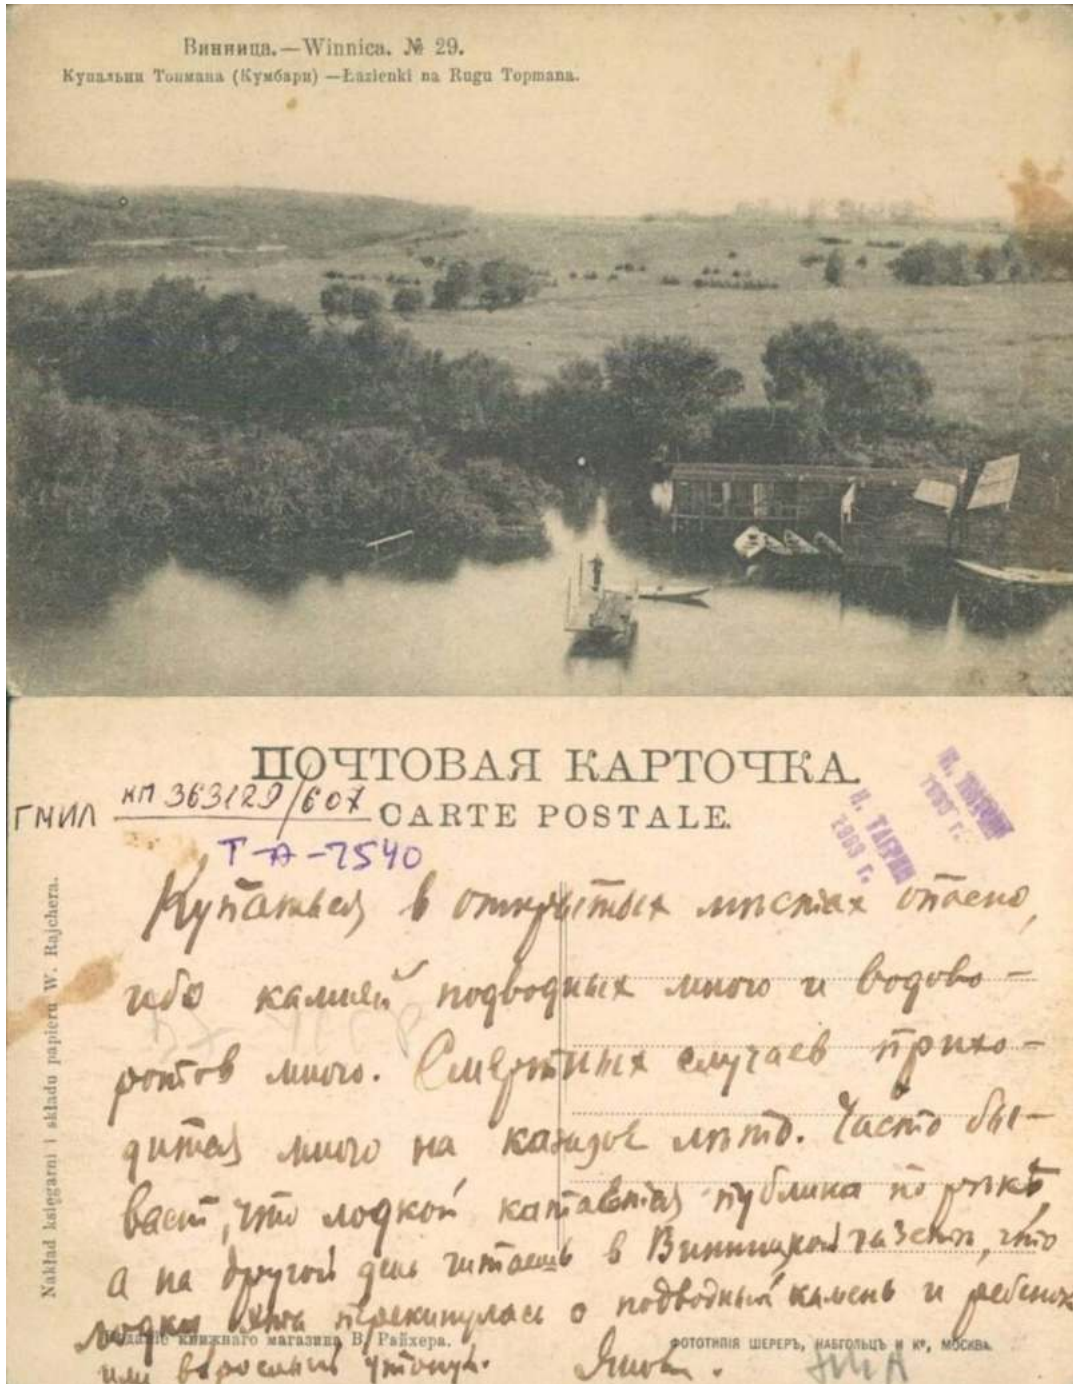 Винница.—Winnica. № 29.
Купальни Топмана (Кумбари) —Łazienki na Rugu Topmana.
ПОЧТОВАЯ КАРТОЧКА.
CARTE POSTALE.
ГМИЛ КП 363129/607
Т-А-7540
Н. ТАГРИН
1963 г.
Nakład księgarni i składu papieru W. Rajchera.
Купаться в открытых мѣстах опасно,
ибо камней подводных много и водово-
ротов много. Смертных случаев прихо-
дится много на каждое лѣто. Часто бы-
вает, что лодкой катается публика по рѣкѣ,
а на другой день читаешь в Винницкой газетѣ, что
лодка эта перекинулась о подводный камень и ребенок
или взрослый утонул.
Издание книжнаго магазина В. Райхера.
ФОТОТИПІЯ ШЕРЕРЪ, НАБГОЛЬЦЪ И Кº, МОСКВА.